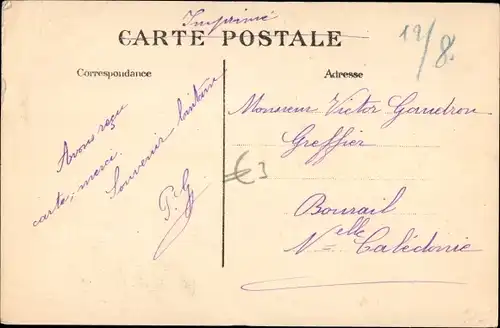 Imprimé
CARTE POSTALE
12/8
Correspondance
Adresse
Avons reçu
carte, merci.
Souvenir lointain
P. G
€ 3
Monsieur Victor
Greffier
Bourail
Nelle Calédonie